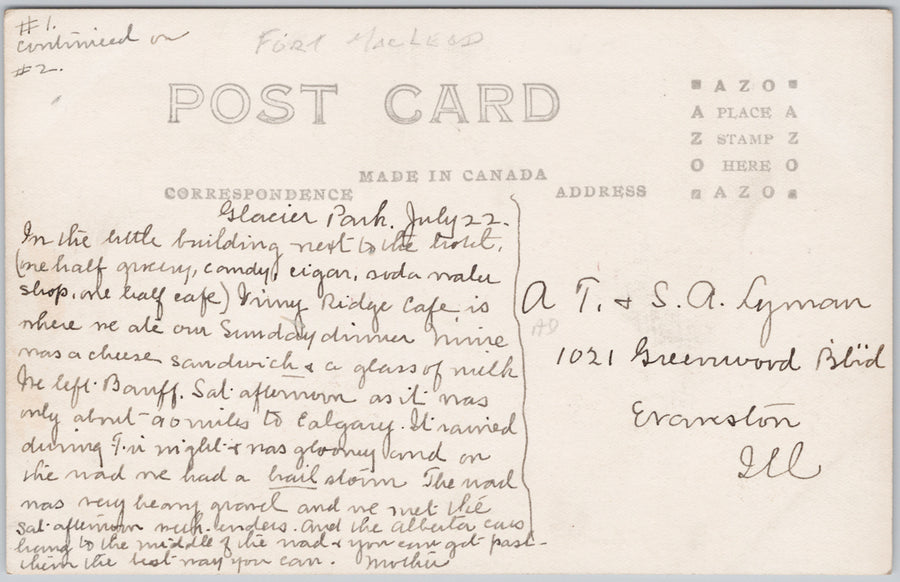 #1.
continued on
#2.
FORT MACLEOD
POST CARD
A Z O
A PLACE A
Z STAMP Z
O HERE O
A Z O
MADE IN CANADA
CORRESPONDENCE
ADDRESS
Glacier Park. July 22.
In the little building next to the hotel,
(one half grocery, candy, cigar, soda water
shop, one half cafe) Vimy Ridge Cafe is
where we ate our Sunday dinner Mine
was a cheese sandwich & a glass of milk
We left Banff. Sat. afternoon as it was
only about 90 miles to Calgary. It rained
during the night & was gloomy and on
the road we had a hail storm The road
was very heavy gravel and we met the
Sat. afternoon week-enders. And the Alberta cars
hang to the middle of the road & you can get past
them the best way you can. Mother
A T. & S. A. Lyman
AD
1021 Greenwood Blvd
Evanston
Ill